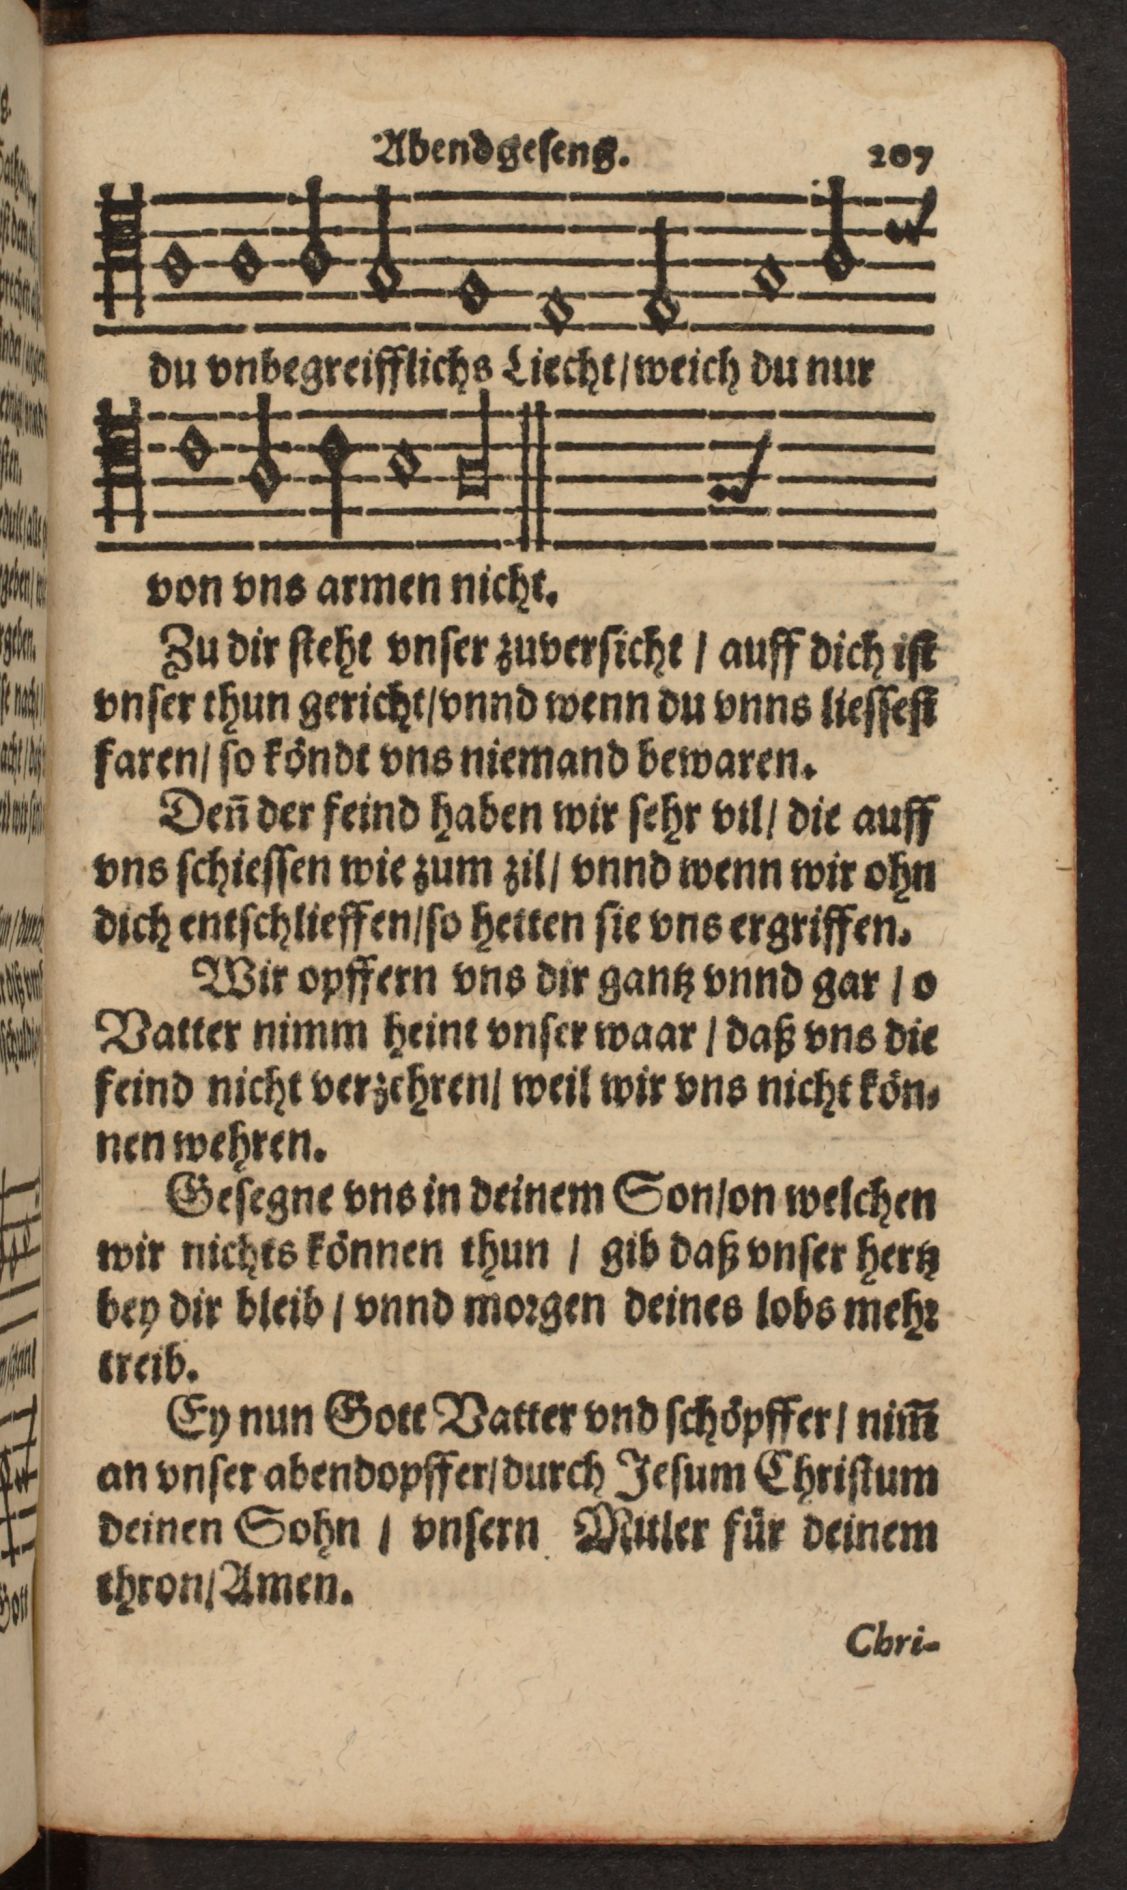 Abendgeseng. 207
du vnbegreifflichs Liecht/weich du nur
von vns armen nicht.
Zu dir steht vnser zuversicht / auff dich ist
vnser thun gericht/vnnd wenn du vnns liessest
faren/ so köndt vns niemand bewaren.
Deñ der feind haben wir sehr vil/ die auff
vns schiessen wie zum zil/ vnnd wenn wir ohn
dich entschlieffen/so hetten sie vns ergriffen.
Wir opffern vns dir gantz vnnd gar / o
Vatter nimm heint vnser waar / daß vns die
feind nicht verzehren/ weil wir vns nicht kön-
nen wehren.
Gesegne vns in deinem Son/on welchen
wir nichts können thun / gib daß vnser hertz
bey dir bleib / vnnd morgen deines lobs mehr
treib.
Ey nun Gott Vatter vnd schöpffer / nim̃
an vnser abendopffer/durch Jesum Christum
deinen Sohn / vnsern Mitler für deinem
thron/Amen.
Chri-